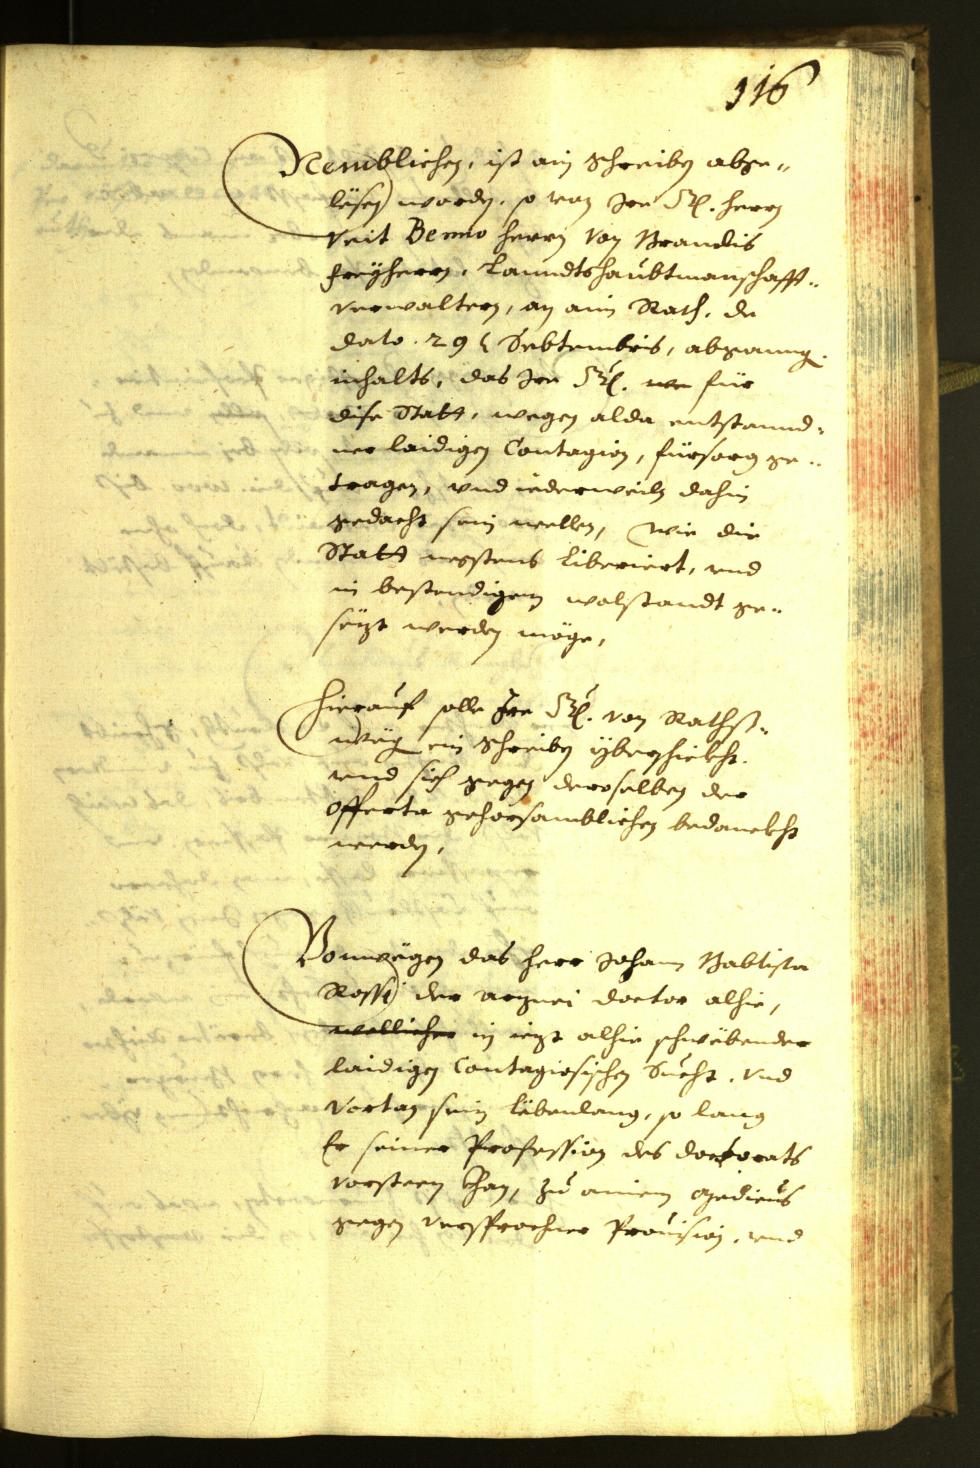 116
Nemblichen, ist ain schreiben abge¬
lesen worden, so von Irr Gn. herrn
Veit Benno herrn von Brandis
freyherrn, Lanndtshaubtmanschafft¬
verwaltern, an ain Rath, de
dato .29 Septembris, abganng.
inhalts, das Irr Gn. für
dise Statt, wegen alda entstannd¬
ner laidigen Contagion, fürsorg ge¬
tragen, vnd iederweiln dahin
gedacht sein wellen, wie die
Statt negstens liberiert, vnd
in bestendigem wolstandt ge¬
sezt werden möge,
Hierauf solle Irr Gn. von Raths¬
weg ein schreiben yberschickht,
vnd sich gegen derselben der
offerte gehorsamblichen bedanckht
werden,
Vonwegen das herr Johann Babtista
Rossi der arznei doctor alhie,
wellicher in iezt alhie schwebender
laidigen Contagiosischen Sucht, vnd
vortan sein lebenlang, so lang
Er seiner Profession des doctorats
vorsteen khan, zu ainem medicus
gegen versprochner Prouision, vnd